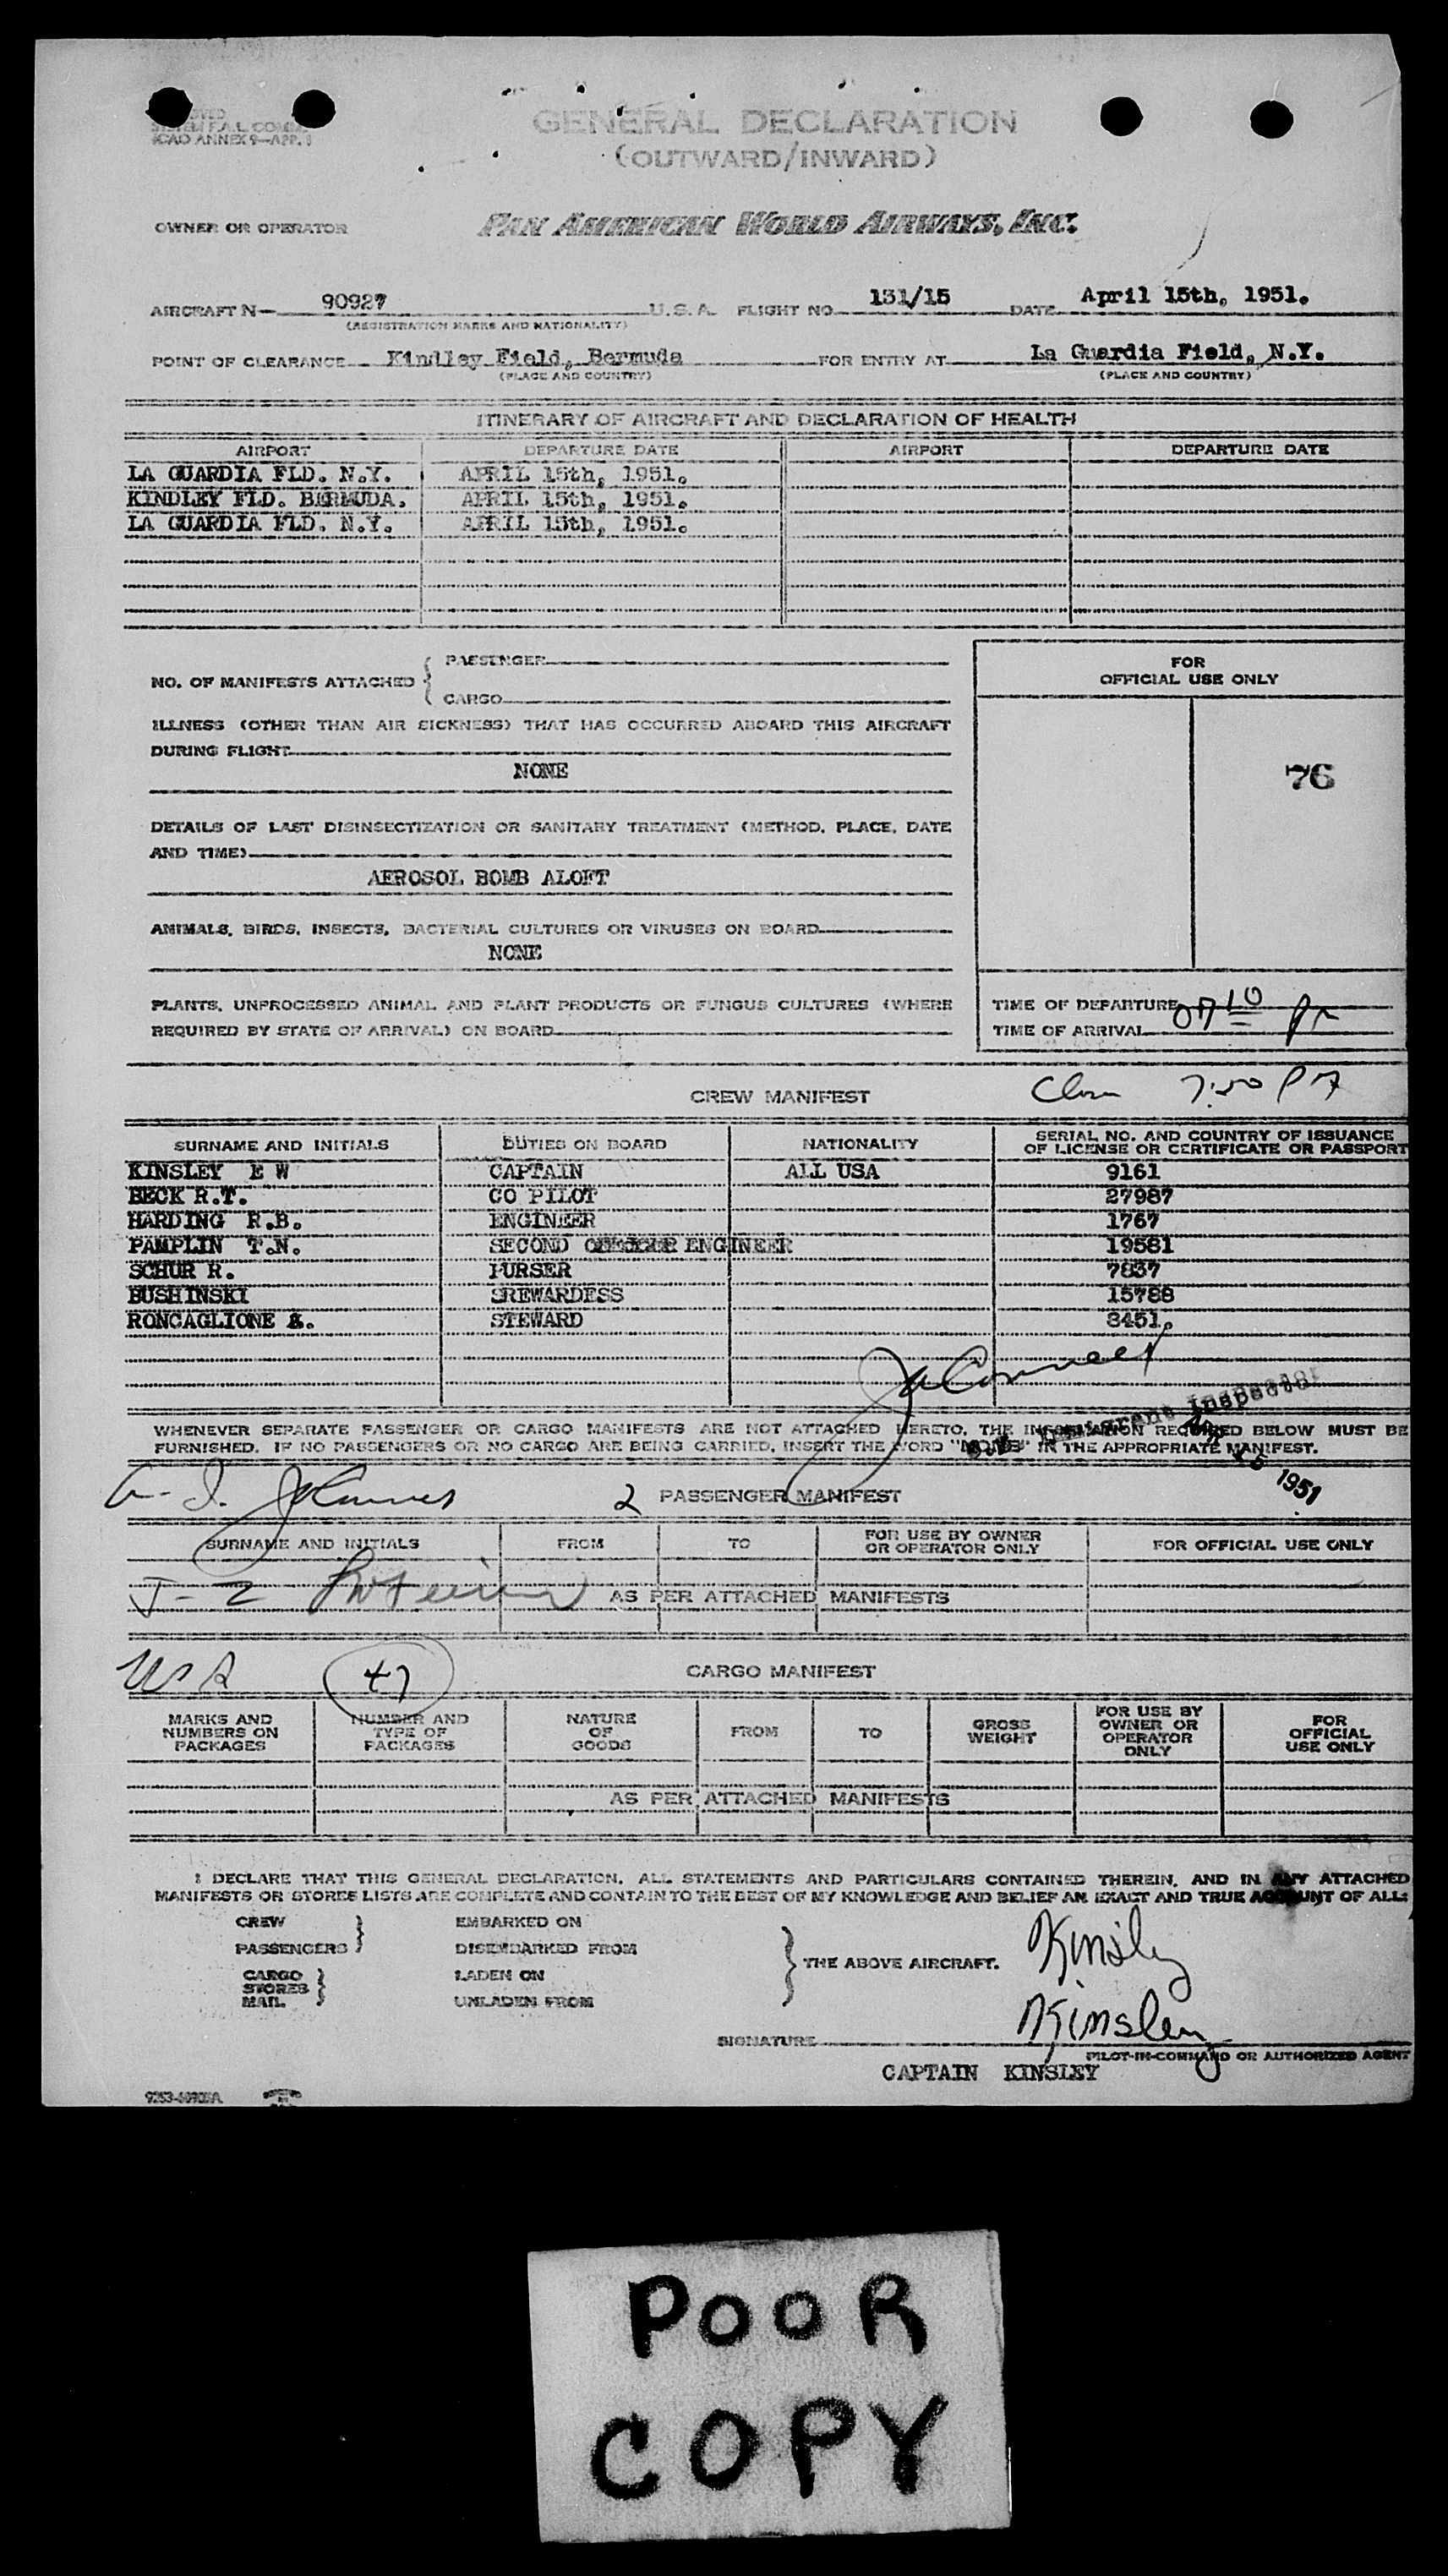 GENERAL DECLARATION
(OUTWARD/INWARD)
F.A.L.
ICAO ANNEX 9—APP. 1
OWNER OR OPERATOR PAN AMERICAN WORLD AIRWAYS, INC.
AIRCRAFT N— 90927 U.S.A. FLIGHT NO. 151/15 DATE April 15th, 1951.
(REGISTRATION MARKS AND NATIONALITY)
POINT OF CLEARANCE Kindley Field, Bermuda FOR ENTRY AT La Guardia Field, N.Y.
(PLACE AND COUNTRY) (PLACE AND COUNTRY)
ITINERARY OF AIRCRAFT AND DECLARATION OF HEALTH
AIRPORT DEPARTURE DATE AIRPORT DEPARTURE DATE
LA GUARDIA FLD. N.Y. APRIL 15th, 1951.
KINDLEY FLD. BERMUDA. APRIL 15th, 1951.
LA GUARDIA FLD. N.Y. APRIL 15th, 1951.
NO. OF MANIFESTS ATTACHED { PASSENGER
CARGO
FOR
OFFICIAL USE ONLY
ILLNESS (OTHER THAN AIR SICKNESS) THAT HAS OCCURRED ABOARD THIS AIRCRAFT
DURING FLIGHT
NONE
76
DETAILS OF LAST DISINSECTIZATION OR SANITARY TREATMENT (METHOD, PLACE, DATE
AND TIME)
AEROSOL BOMB ALOFT
ANIMALS, BIRDS, INSECTS, BACTERIAL CULTURES OR VIRUSES ON BOARD
NONE
PLANTS, UNPROCESSED ANIMAL AND PLANT PRODUCTS OR FUNGUS CULTURES (WHERE
REQUIRED BY STATE OF ARRIVAL) ON BOARD
TIME OF DEPARTURE
TIME OF ARRIVAL 0710
CREW MANIFEST 7:50 PM
SURNAME AND INITIALS DUTIES ON BOARD NATIONALITY SERIAL NO. AND COUNTRY OF ISSUANCE
OF LICENSE OR CERTIFICATE OR PASSPORT
KINSLEY E W CAPTAIN ALL USA 9161
BECK R.T. CO PILOT 27987
HARDING R.B. ENGINEER 1767
PAMPLIN T.N. SECOND ENGINEER 19581
SCHUR R. PURSER 7837
BUSHINSKI SREWARDESS 15788
RONCAGLIONE A. STEWARD 8451.
Immigrant Inspector
APR 15 1951
WHENEVER SEPARATE PASSENGER OR CARGO MANIFESTS ARE NOT ATTACHED HERETO, THE INFORMATION REQUIRED BELOW MUST BE
FURNISHED. IF NO PASSENGERS OR NO CARGO ARE BEING CARRIED, INSERT THE WORD "NONE" IN THE APPROPRIATE MANIFEST.
2 PASSENGER MANIFEST
SURNAME AND INITIALS FROM TO FOR USE BY OWNER
OR OPERATOR ONLY FOR OFFICIAL USE ONLY
AS PER ATTACHED MANIFESTS
USA 47 CARGO MANIFEST
MARKS AND
NUMBERS ON
PACKAGES
NUMBER AND
TYPE OF
PACKAGES
NATURE
OF
GOODS
FROM
TO
GROSS
WEIGHT
FOR USE BY
OWNER OR
OPERATOR
ONLY
FOR
OFFICIAL
USE ONLY
AS PER ATTACHED MANIFESTS
I DECLARE THAT THIS GENERAL DECLARATION, ALL STATEMENTS AND PARTICULARS CONTAINED THEREIN, AND IN ANY ATTACHED
MANIFESTS OR STORES LISTS ARE COMPLETE AND CONTAIN TO THE BEST OF MY KNOWLEDGE AND BELIEF AN EXACT AND TRUE ACCOUNT OF ALL:
CREW EMBARKED ON
PASSENGERS DISEMBARKED FROM
CARGO LADEN ON
STORES
MAIL UNLADEN FROM
THE ABOVE AIRCRAFT.
Kinsley
Kinsley
SIGNATURE
PILOT-IN-COMMAND OR AUTHORIZED AGENT
CAPTAIN KINSLEY
POOR
COPY